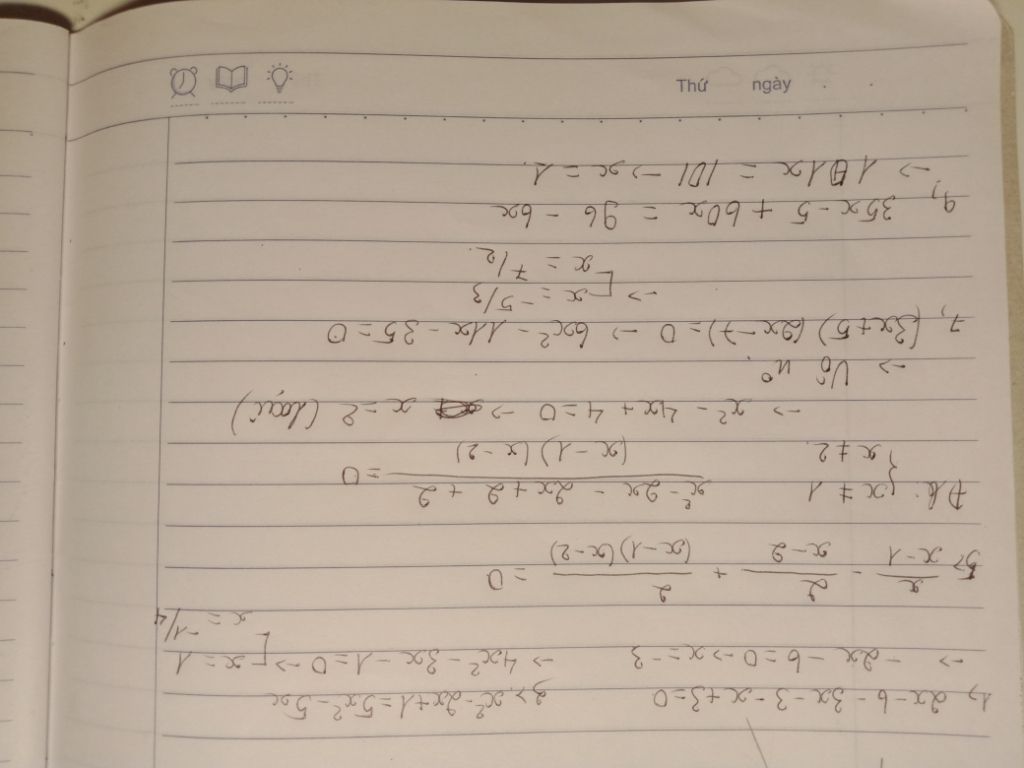 Thứ ngày
1, 2x - 6 - 3x - 3 - x + 3 = 0
→ - 2x - 6 = 0 → x = - 3
3, x² - 2x + 1 = 5x² - 5x
→ 4x² - 3x - 1 = 0 → [ x = 1
x = -1/4
5, x/(x - 1) - 2/(x - 2) + 2/((x - 1)(x - 2)) = 0
Đk: { x ≠ 1
x ≠ 2.
(x² - 2x - 2x + 2 + 2)/((x - 1)(x - 2)) = 0
→ x² - 4x + 4 = 0 → x = 2 (loại)
→ Vô n°.
7, (3x + 5)(2x - 7) = 0 → 6x² - 11x - 35 = 0
→ [ x = -5/3
x = 7/2.
9, 35x - 5 + 60x = 96 - 6x
→ 101x = 101 → x = 1.